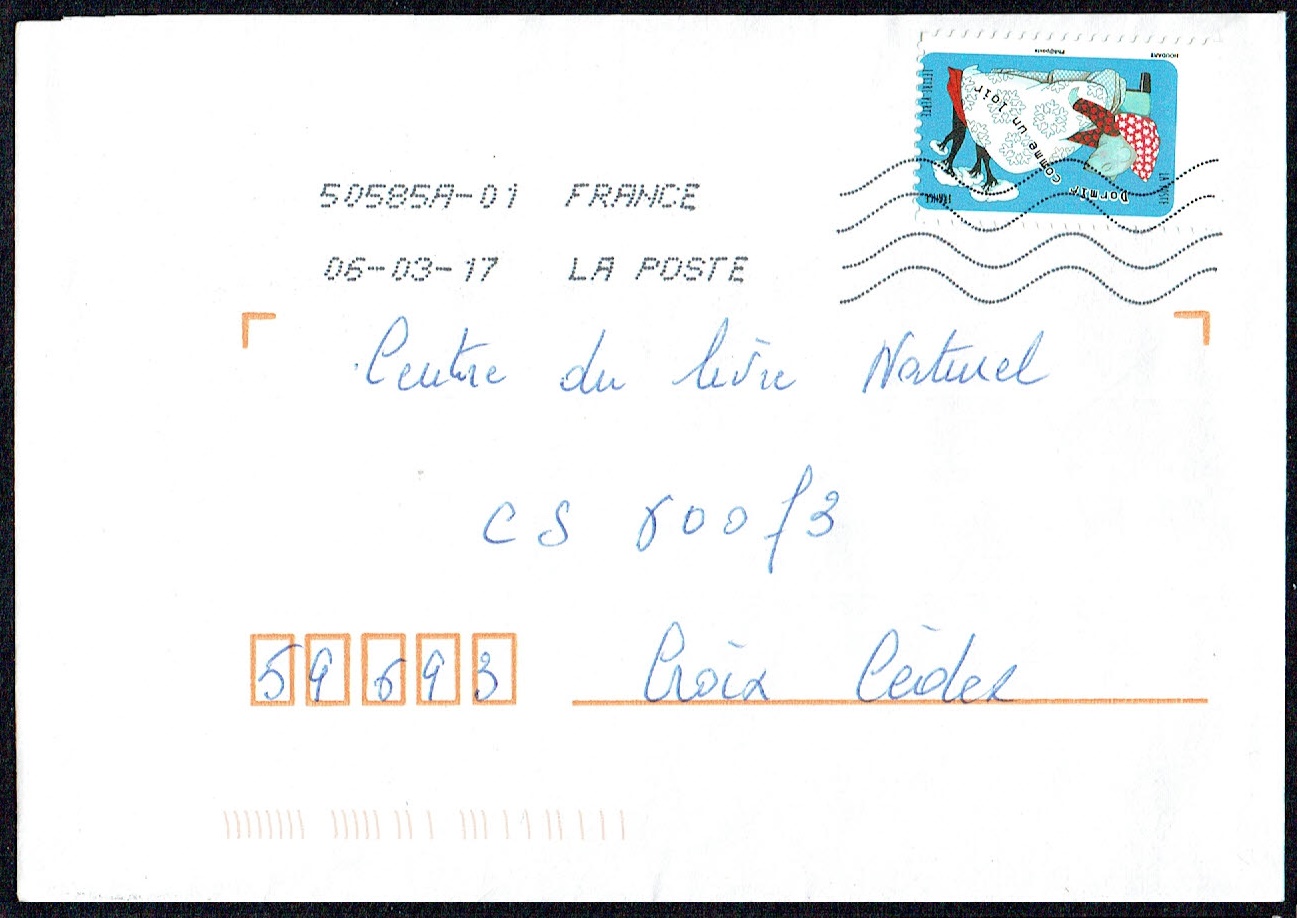 HOUDART
Philippoteaux
LETTRE VERTE
Dormir comme un loir
LA POSTE
FRANCE
50585A-01 FRANCE
06-03-17 LA POSTE
Centre du livre Naturel
CS 600 73
59693 Croix Cèdex